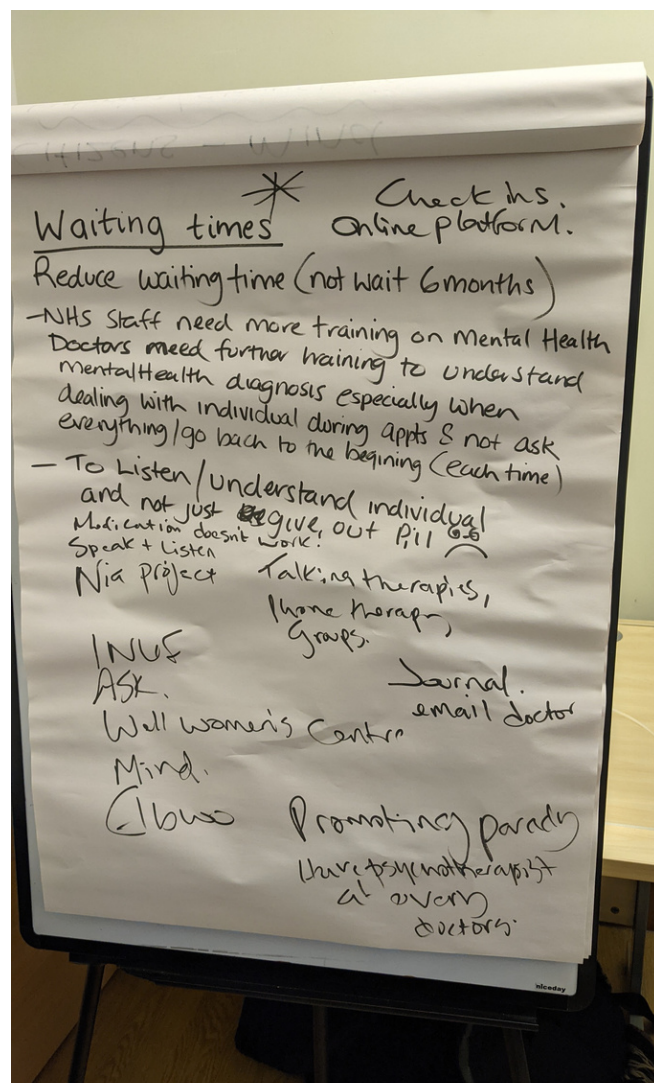 Check ins.
Waiting times
Online platform.
Reduce waiting time (not wait 6 months)
- NHS Staff need more training on Mental Health
Doctors need further training to understand
mental Health diagnosis especially when
dealing with individual during appts & not ask
everything/go back to the begining (each time)
- To Listen/understand individual
and not just give out Pill
Medication doesn't work!
Speak + Listen
Nia project
Talking therapies,
therapy
Groups.
ASK.
Journal.
email doctor
Well women's Centre
Mind.
Promoting
Have psychotherapist
at every
doctors.
niceday